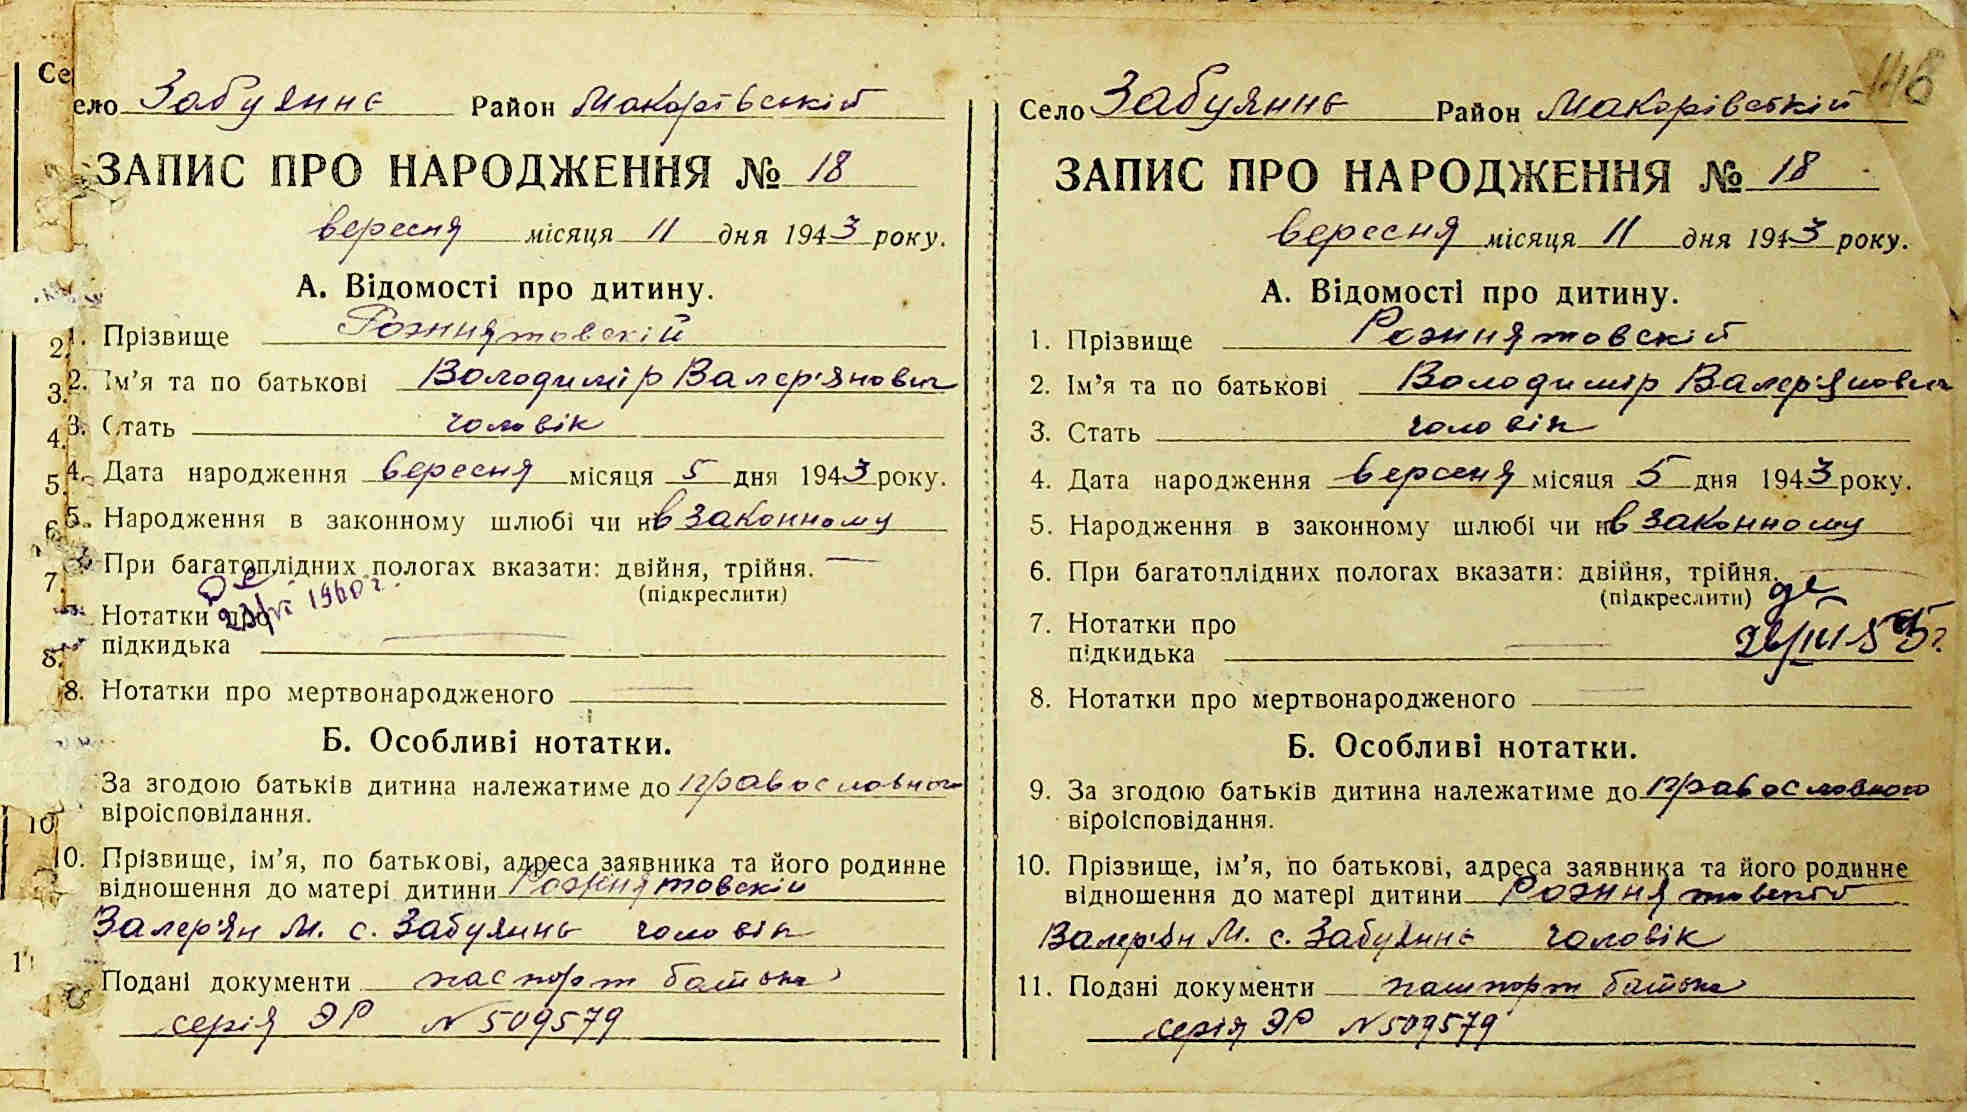 Се
ело Забуяннє Район Макарівській
ЗАПИС ПРО НАРОДЖЕННЯ № 18
вересня місяця 11 дня 1943 року.
А. Відомості про дитину.
1. Прізвище Рожнятовскій
2. Ім’я та по батькові Володимір Валер'янович
3. Стать чоловік
4. Дата народження вересня місяця 5 дня 1943 року.
5. Народження в законному шлюбі чи в законному
6. При багатоплідних пологах вказати: двійня, трійня. —
(підкреслити)
23/VI 1960 г.
7. Нотатки про
підкидька —
8. Нотатки про мертвонародженого —
Б. Особливі нотатки.
За згодою батьків дитина належатиме до православного
віроісповідання.
10. Прізвище, ім’я, по батькові, адреса заявника та його родинне
відношення до матері дитини Рожнятовскій
Валер'ян М. с. Забуяннє чоловік
Подані документи паспорт батька
серія ЭР № 509579
148
Село Забуяннє Район Макорівській
ЗАПИС ПРО НАРОДЖЕННЯ № 18
вересня місяця 11 дня 1943 року.
А. Відомості про дитину.
1. Прізвище Рожнятовскій
2. Ім’я та по батькові Володимір Валер'янович
3. Стать чоловік
4. Дата народження вересня місяця 5 дня 1943 року.
5. Народження в законному шлюбі чи в законному
6. При багатоплідних пологах вказати: двійня, трійня. —
(підкреслити)
7. Нотатки про
підкидька —
8. Нотатки про мертвонародженого —
Б. Особливі нотатки.
9. За згодою батьків дитина належатиме до православного
віроісповідання.
10. Прізвище, ім’я, по батькові, адреса заявника та його родинне
відношення до матері дитини Рожнятовскій
Валер'ян М. с. Забуяннє чоловік
11. Подані документи пашпорт батька
серія ЭР № 509579